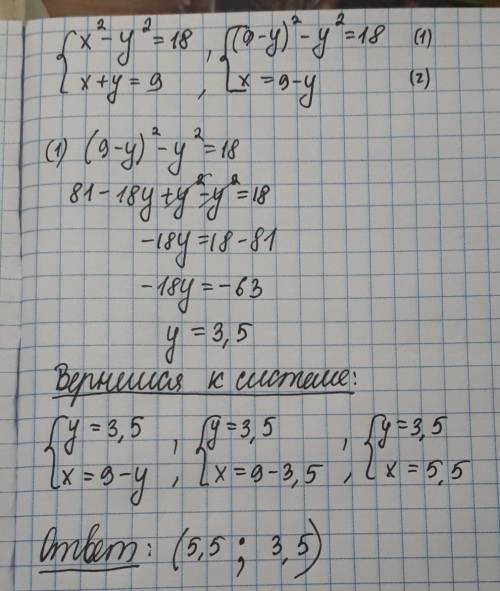 {x² - y² = 18 , {(9-y)² - y² = 18 (1)
{x + y = 9 , {x = 9 - y (2)
(1) (9-y)² - y² = 18
81 - 18y + y² - y² = 18
-18y = 18 - 81
-18y = -63
y = 3,5
Вернемся к системе:
{y = 3,5 , {y = 3,5 , {y = 3,5
{x = 9 - y , {x = 9 - 3,5 , {x = 5,5
Ответ: (5,5 ; 3,5)